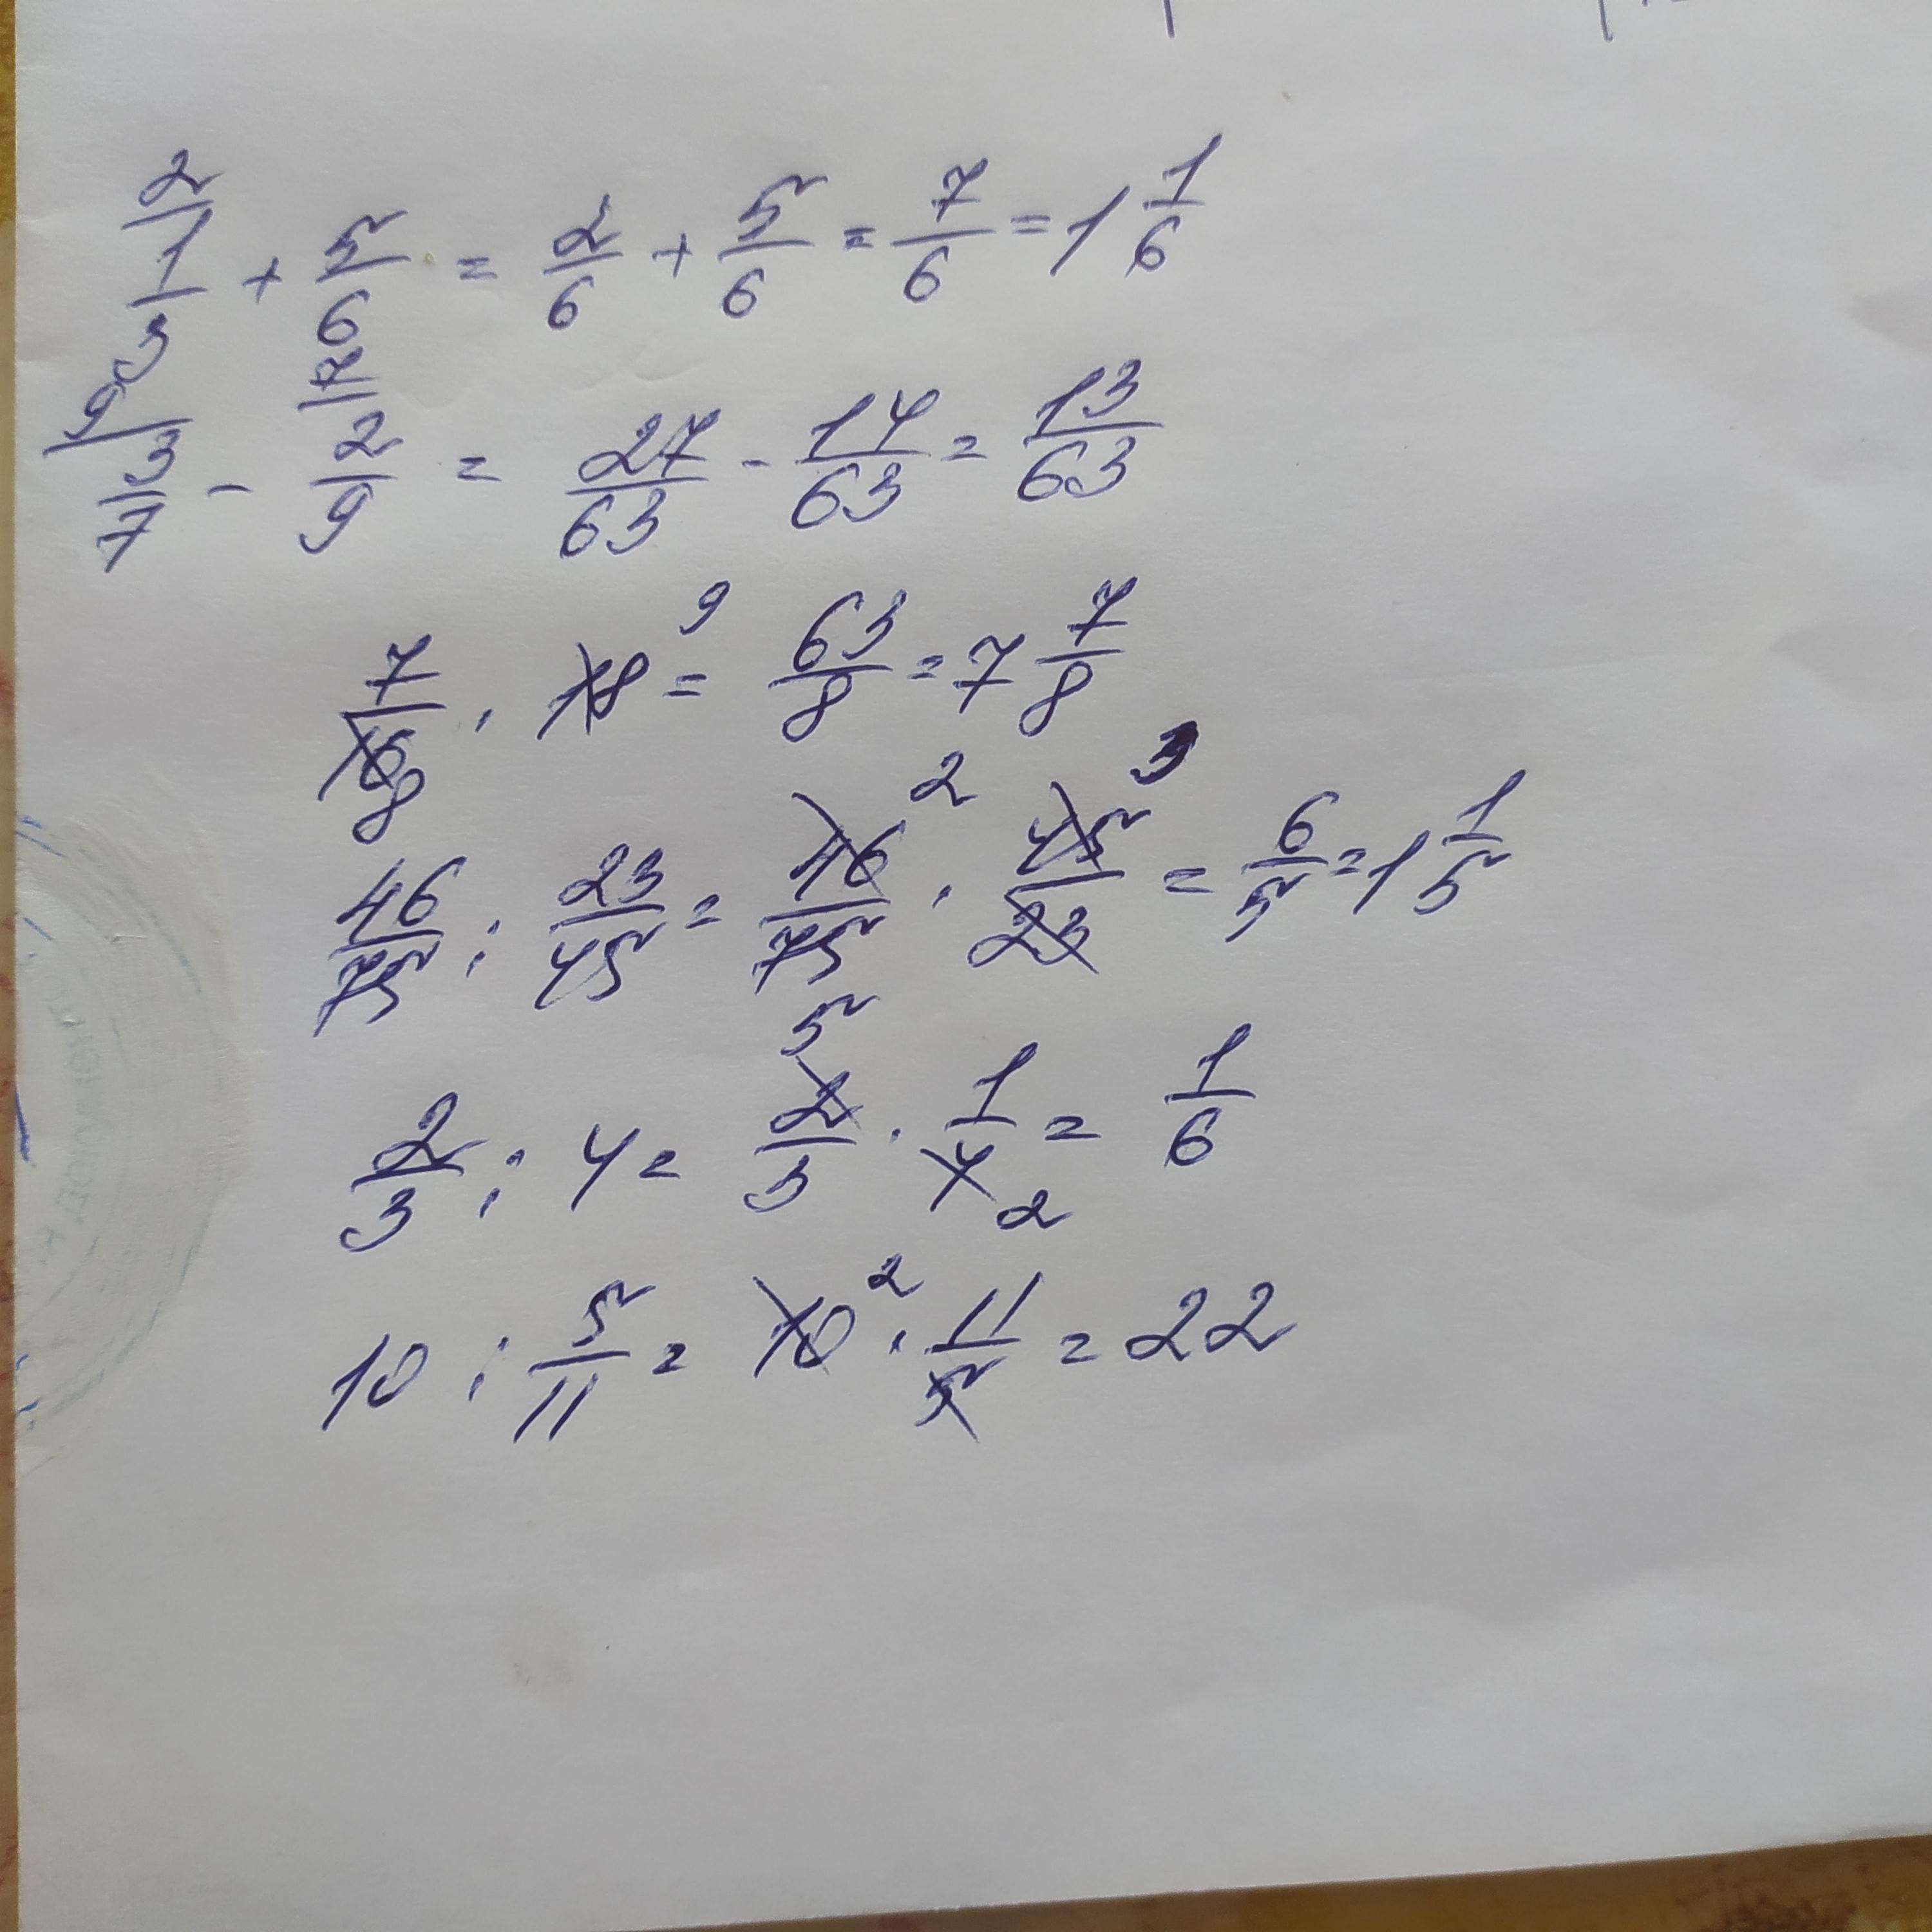 2/ 1/3 + 5/6 = 2/6 + 5/6 = 7/6 = 1 1/6
9/ 3/7 - 7/ 2/9 = 27/63 - 14/63 = 13/63
7/16 8 · 18 9 = 63/8 = 7 7/8
46/75 : 23/45 = 46 2/75 5 · 45 3/23 = 6/5 = 1 1/5
2/3 : 4 = 2/3 · 1/4 2 = 1/6
10 : 5/11 = 10 2 · 11/5 = 22